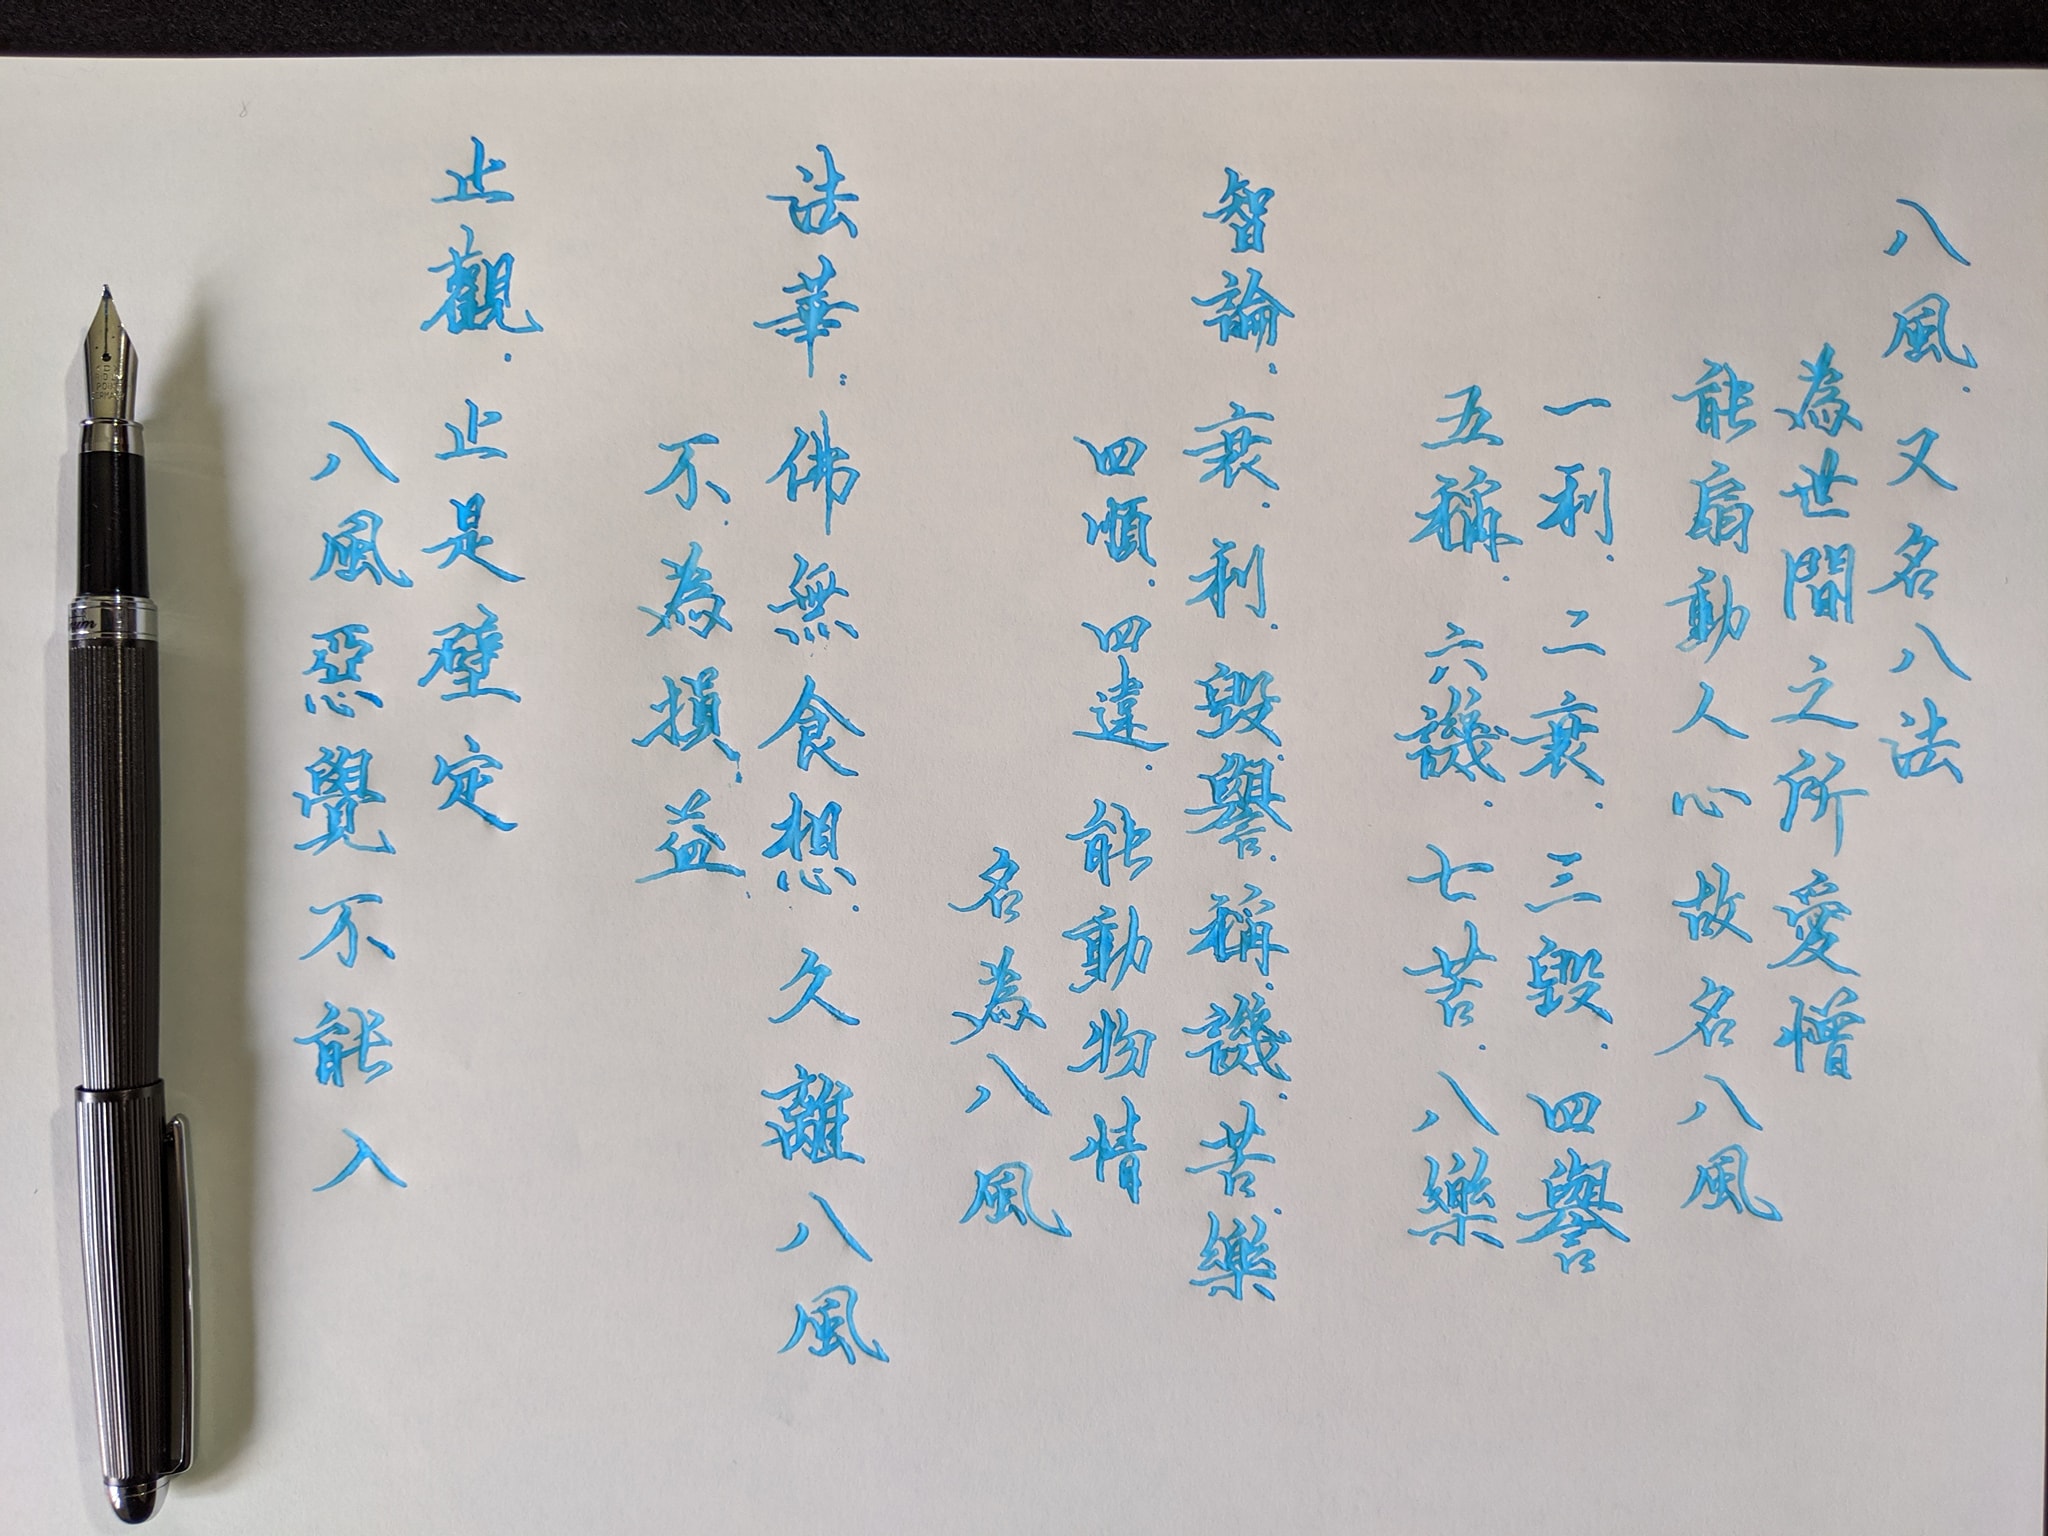 八風.又名八法
為世間之所愛憎
能扇動人心故名八風
一利.二衰.三毀.四譽
五稱.六譏.七苦.八樂
智論:衰.利.毀.譽.稱.譏.苦.樂
四順.四違.能動物情
名為八風
法華:佛無食想.久離八風
不為損益
止觀.止是壁定
八風惡覺不能入